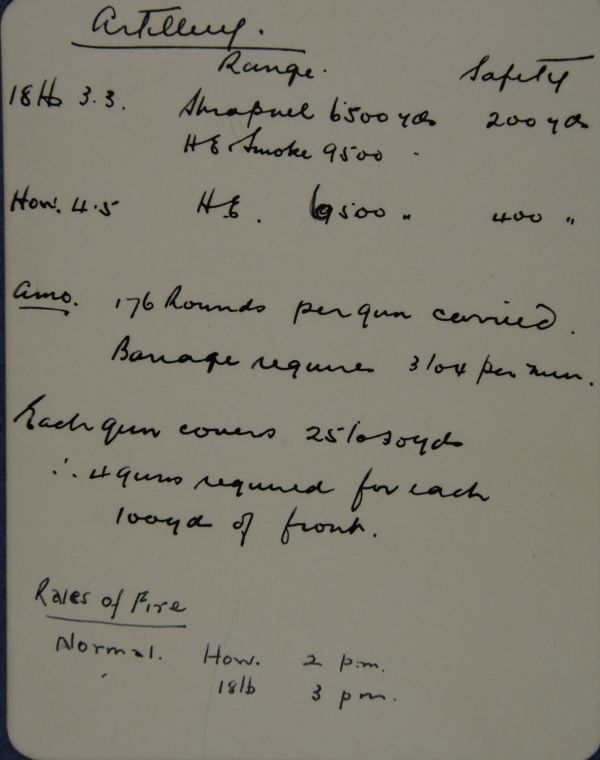 Artillery.
Range. Safety
18lb 3.3. Shrapnel 6500 yds 200 yds
HE Smoke 9500
How. 4.5 HE. 6500 " 400 "
Amo. 176 Rounds per gun carried.
Barrage requires 3 to 4 per min.
Each gun covers 25 to 30 yds
∴ 4 guns required for each
100yd of front.
Rates of Fire
Normal. How. 2 p.m.
18lb 3 p.m.